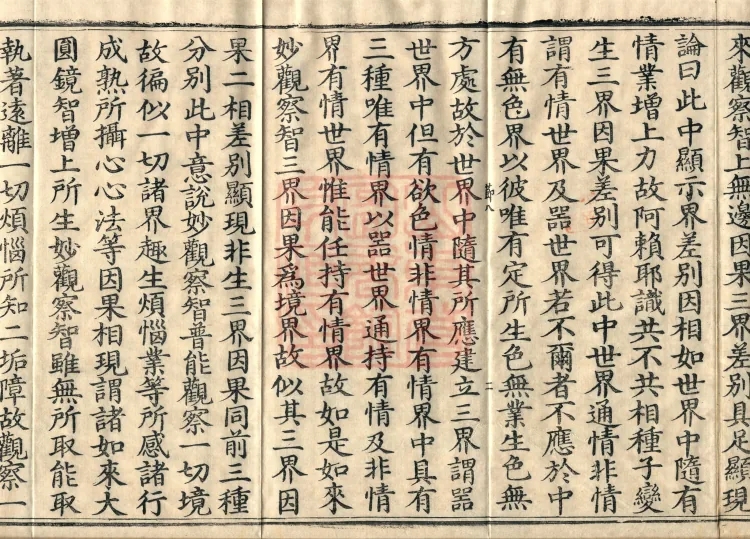 來觀察智上無邊因果三界差別具足顯現
論曰此中顯示界差別因相如世界中隨有
情業增上力故阿賴耶識共不共相種子變
生三界因果差別可得此中世界通情非情
謂有情世界及器世界若不爾者不應於中
有無色界以彼唯有定所生色無業生色無
方處故於世界中隨其所應建立三界謂器
世界中但有欲色情非情界有情界中具有
三種唯有情界以器世界通持有情及非情
界有情世界惟能任持有情界故如是如來
妙觀察智三界因果為境界故似其三界因
果二相差別顯現非生三界因果同前三種
分別此中意說妙觀察智普能觀察一切境
故徧似一切諸界趣生煩惱業等所感諸行
成熟所攝心心法等因果相現謂諸如來大
圓鏡智增上所生妙觀察智雖無所取能取
執著遠離一切煩惱所知二垢障故觀察一